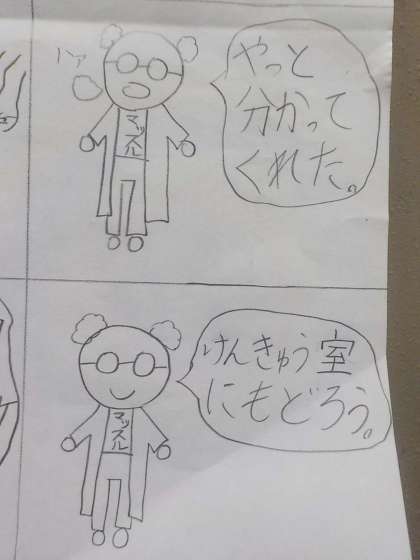 ハァ
やっと
分かって
くれた。
マッスル
けんきゅう室
にもどろう。
マッスル